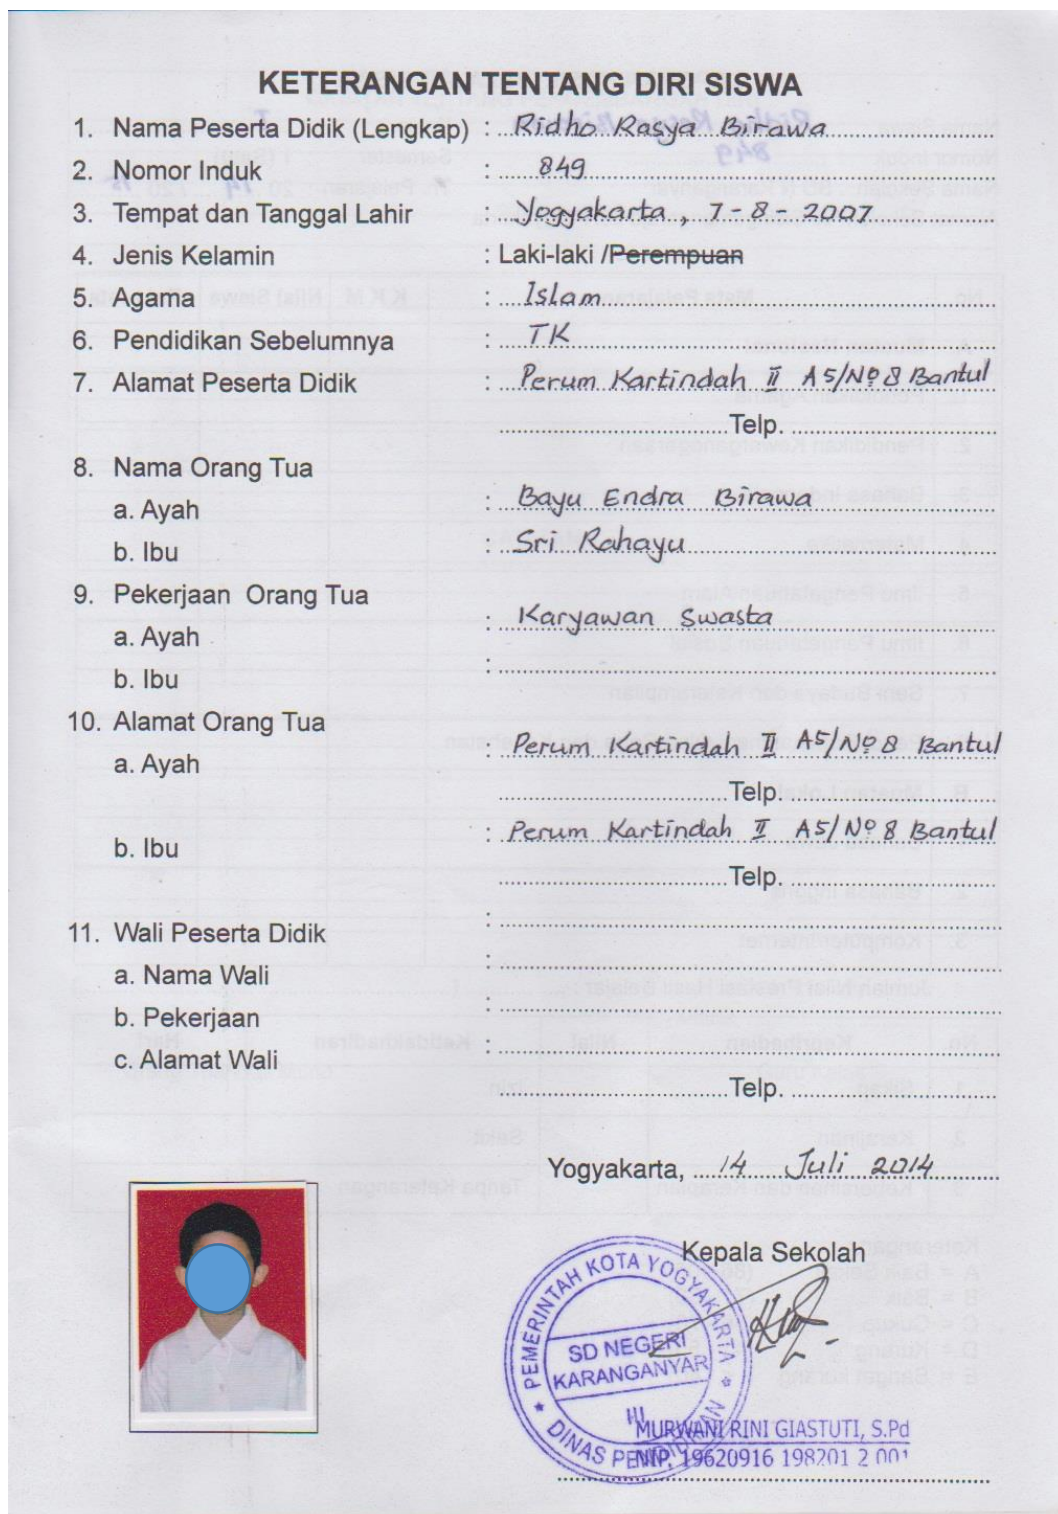 KETERANGAN TENTANG DIRI SISWA
1. Nama Peserta Didik (Lengkap) : Ridho Rasya Birawa
2. Nomor Induk : 849
3. Tempat dan Tanggal Lahir : Yogyakarta, 7 - 8 - 2007
4. Jenis Kelamin : Laki-laki /Perempuan
5. Agama : Islam
6. Pendidikan Sebelumnya : TK
7. Alamat Peserta Didik : Perum Kartindah II A5/No 8 Bantul
Telp.
8. Nama Orang Tua
a. Ayah : Bayu Endra Birawa
b. Ibu : Sri Rahayu
9. Pekerjaan Orang Tua
a. Ayah : Karyawan Swasta
b. Ibu :
10. Alamat Orang Tua
a. Ayah : Perum Kartindah II A5/No 8 Bantul
Telp.
b. Ibu : Perum Kartindah II A5/No 8 Bantul
Telp.
11. Wali Peserta Didik :
a. Nama Wali :
b. Pekerjaan :
c. Alamat Wali :
Telp.
Yogyakarta, 14 Juli 2014
Kepala Sekolah
PEMERINTAH KOTA YOGYAKARTA
SD NEGERI
KARANGANYAR
III
DINAS PENDIDIKAN
MURWANI RINI GIASTUTI, S.Pd
NIP. 19620916 198201 2 001